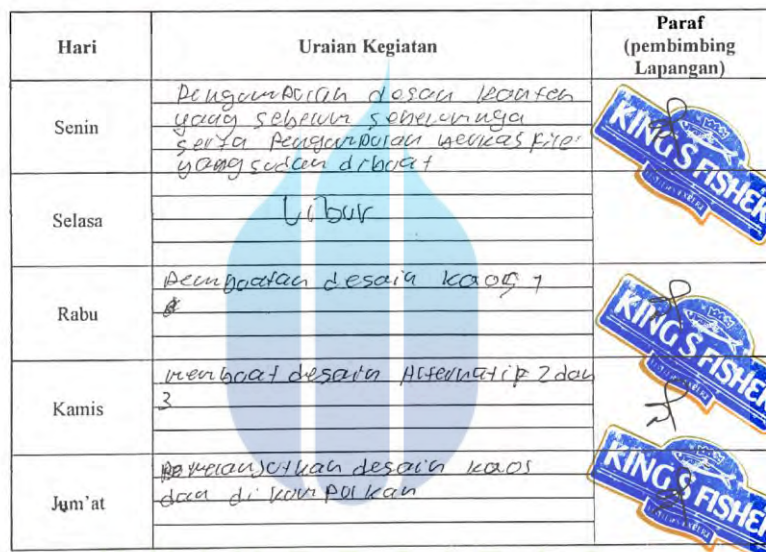 Hari
Uraian Kegiatan
Paraf
(pembimbing
Lapangan)
Senin
Pengumpulan desain konten
yang sebelum sebelumnya
serta Pengumpulan berkas file
yang sudah dibuat
KING'S FISHER
Selasa
Libur
Rabu
Pembuatan desain kaos 1
KING'S FISHER
Kamis
membuat desain Alternatif 2 dan
3
Jum'at
melanjutkan desain kaos
dan di kumpulkan
KING'S FISHER